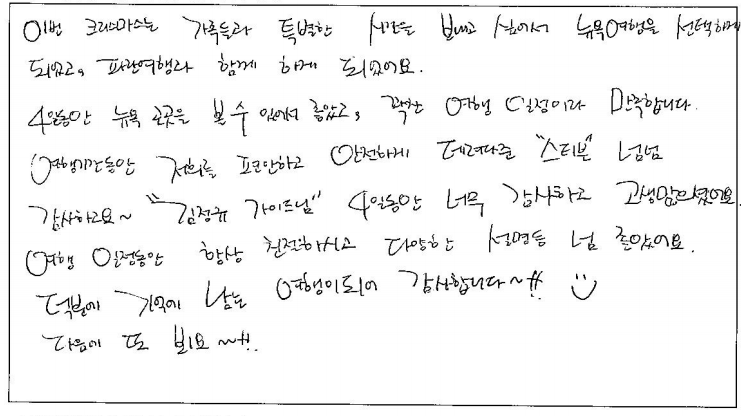 이번 크리스마스는 가족들과 특별한 시간을 보내고 싶어서 뉴욕여행을 선택하게
되었고, 파란여행과 함께 하게 되었어요.
4일동안 뉴욕 곳곳을 볼 수 있어서 좋았고, 꽉찬 여행 일정이라 만족합니다.
여행기간동안 저희를 편안하고 안전하게 데려다준 "스티브" 넘넘
감사하고요~ "김정규 가이드님" 4일동안 너무 감사하고 고생많으셨어요.
여행 일정동안 항상 친절하시고 다양한 설명등 넘 좋았어요.
덕분에 기억에 남는 여행이되어 감사합니다~!! ☺
다음에 또 뵈요~!!